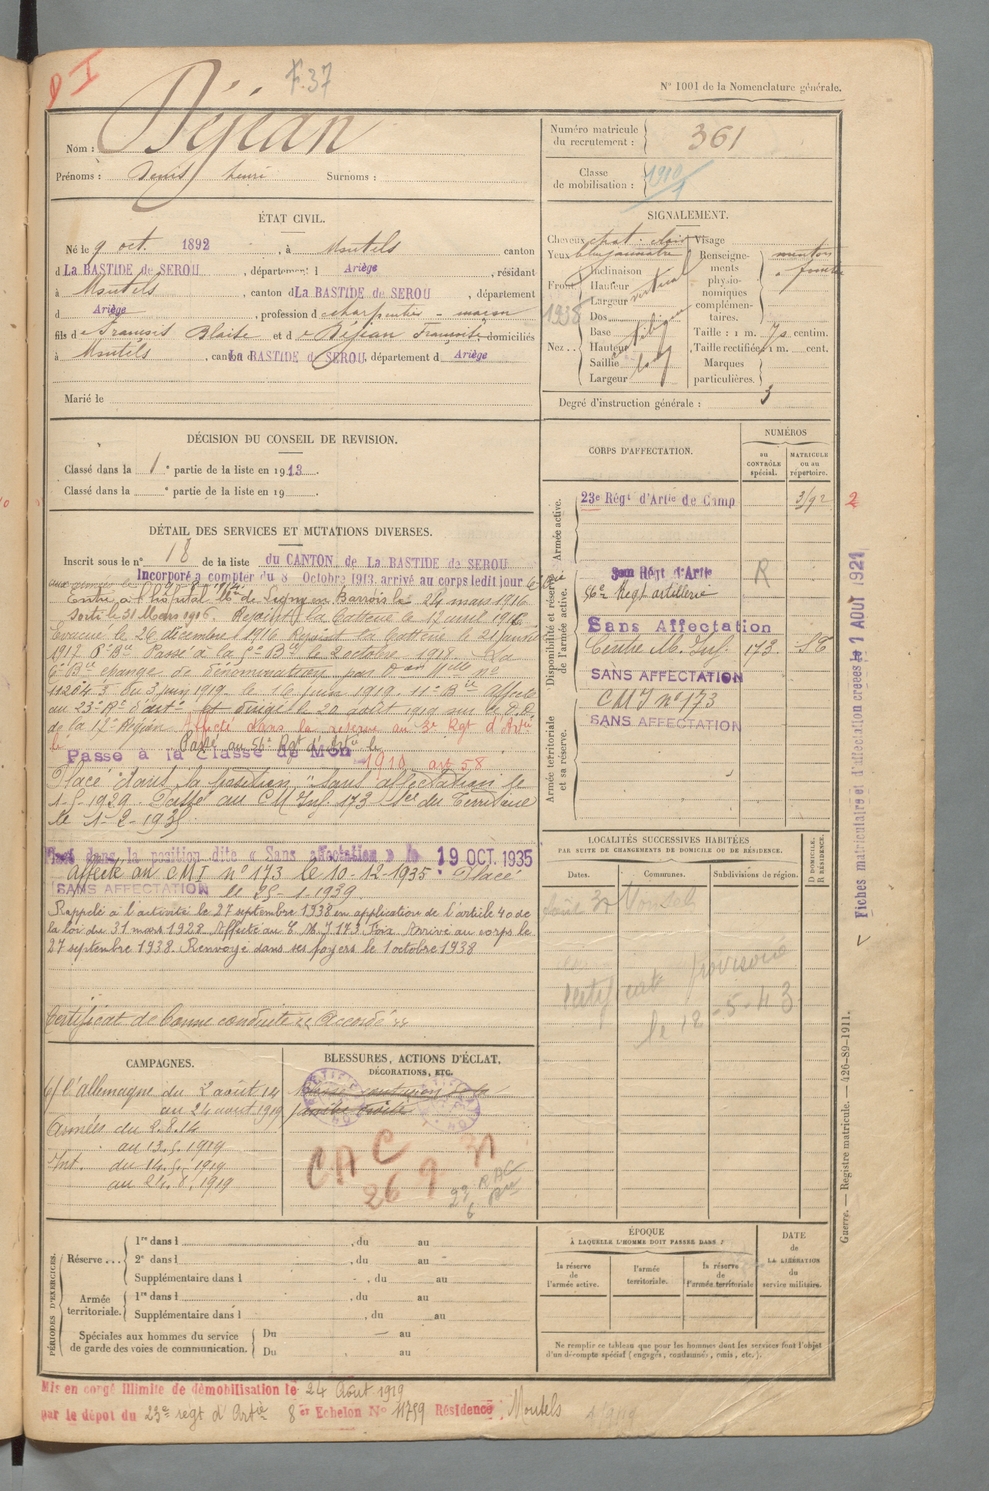 F.37
N° 1001 de la Nomenclature générale.
Nom : Déjean
Prénoms : Denis henri Surnoms :
Numéro matricule du recrutement : 361
Classe de mobilisation : 1910
ÉTAT CIVIL.
Né le 9 oct. 1892, à Montels canton
d La BASTIDE de SEROU, département d Ariège, résidant
à Montels, canton d La BASTIDE de SEROU, département
d Ariège, profession de charpentier - maçon
fils de François Blaise et de Déjean Françoise, domiciliés
à Montels, canton d La BASTIDE de SEROU, département d Ariège
Marié le
SIGNALEMENT.
Cheveux chat. clair Visage
Yeux bleu jaunâtre
Front Inclinaison
Hauteur
Largeur
vertical
Renseignements physionomiques complémentaires. menton à fossette
1938
Nez Dos
Base
Hauteur
Saillie
Largeur
Taille : 1 m. 70 centim.
Taille rectifiée 1 m. cent.
Marques particulières.
Degré d'instruction générale : 3
DÉCISION DU CONSEIL DE REVISION.
Classé dans la 1e partie de la liste en 1913.
Classé dans la e partie de la liste en 19
DÉTAIL DES SERVICES ET MUTATIONS DIVERSES.
Inscrit sous le n° 18 de la liste du CANTON de La BASTIDE de SEROU
Incorporé à compter du 8 Octobre 1913, arrivé au corps ledit jour
Entré à l'hopital de Ligny en Barrois le 24 mars 1916
Sorti le 31 Mars 1916. Rejoint la batterie le 17 avril 1916
Evacué le 26 décembre 1916 Rejoint la batterie le 21 janvier
1917 Passé à la 5e Bie le 2 octobre 1918 La
6e Bie change de dénomination par
11204 3 du 5 juin 1919 le 16 juin 1919. 11e Bie Affecté
au 23e Rt d'artie et dirigé le 20 août 1919 sur le D.D.
de la 17e Région Affecté dans la réserve au 3e Rgt d'Artie
Passé au 56e Rgt d'Artie le
Passé à la Classe de Mon 1910 art 58
Placé dans la position "sans affectation" le
1-5-1929. Passé au CM Inf. 173
le 1-2-193
Placé dans la position dite « Sans affectation » le 19 OCT. 1935
affecté au CMI n° 173 le 10-12-1935. Placé
SANS AFFECTATION le 25-1-1939
Rappelé à l'activité le 27 septembre 1938 en application de l'article 40 de
la loi du 31 mars 1928 Affecté au C M I 173 Foix Arrivé au corps le
27 septembre 1938. Renvoyé dans ses foyers le 1 octobre 1938
Certificat de bonne conduite "Accordé"
CORPS D'AFFECTATION.
NUMÉROS
au CONTRÔLE spécial.
MATRICULE ou au répertoire.
Armée active.
23e Régt d'Artie de Camp 3192 2
Disponibilité et réserve de l'armée active.
3me Régt d'Artie R
56e Regt artillerie
Sans Affectation
Centre M. Inf. 173
SANS AFFECTATION
CMI n° 173
SANS AFFECTATION
Armée territoriale et sa réserve.
LOCALITÉS SUCCESSIVES HABITÉES
PAR SUITE DE CHANGEMENTS DE DOMICILE OU DE RÉSIDENCE.
Dates.
Communes.
Subdivisions de région.
D DOMICILE. R RÉSIDENCE.
Certificat provisoire
le 18-5-43
CAMPAGNES.
c/ l'allemagne du 2 août 14
au 24 août 1919
Armées du 2.8.14
au 13.5.1919
Int. du 14.5.1919
au 24.8.1919
BLESSURES, ACTIONS D'ÉCLAT, DÉCORATIONS, ETC.
jambe droite
CA C
26 9
PÉRIODES D'EXERCICES.
Réserve 1re dans l , du au
2e dans l , du au
Supplémentaire dans l , du au
Armée territoriale. 1re dans l , du au
Supplémentaire dans l , du au
Spéciales aux hommes du service de garde des voies de communication. Du au
Du au
ÉPOQUE
À LAQUELLE L'HOMME DOIT PASSER DANS :
la réserve de l'armée active.
l'armée territoriale.
la réserve de l'armée territoriale
DATE de LA LIBÉRATION du service militaire.
Ne remplir ce tableau que pour les hommes dont les services font l'objet d'un décompte spécial (engagés, condamnés, omis, etc.).
Mis en congé illimité de démobilisation le 24 Août 1919
par le dépôt du 23e regt d'Artie 8e Echelon N° 11759 Résidence : Montels
Fiches matriculaire et d'affectation créées le 1 AOUT 1921
Guerre. — Registre matricule. — 426-89-1911.